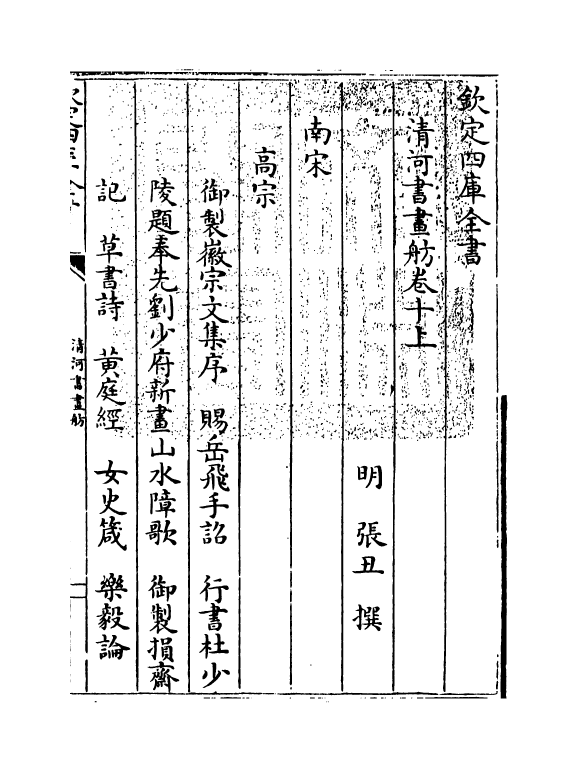 欽定四庫全書
清河書畫舫卷十上
明 張丑 撰
南宋
高宗
御製徽宗文集序 賜岳飛手詔 行書杜少
陵題奉先劉少府新畫山水障歌 御製損齋
記 草書詩 黄庭經 女史箴 樂毅論
清河書畫舫